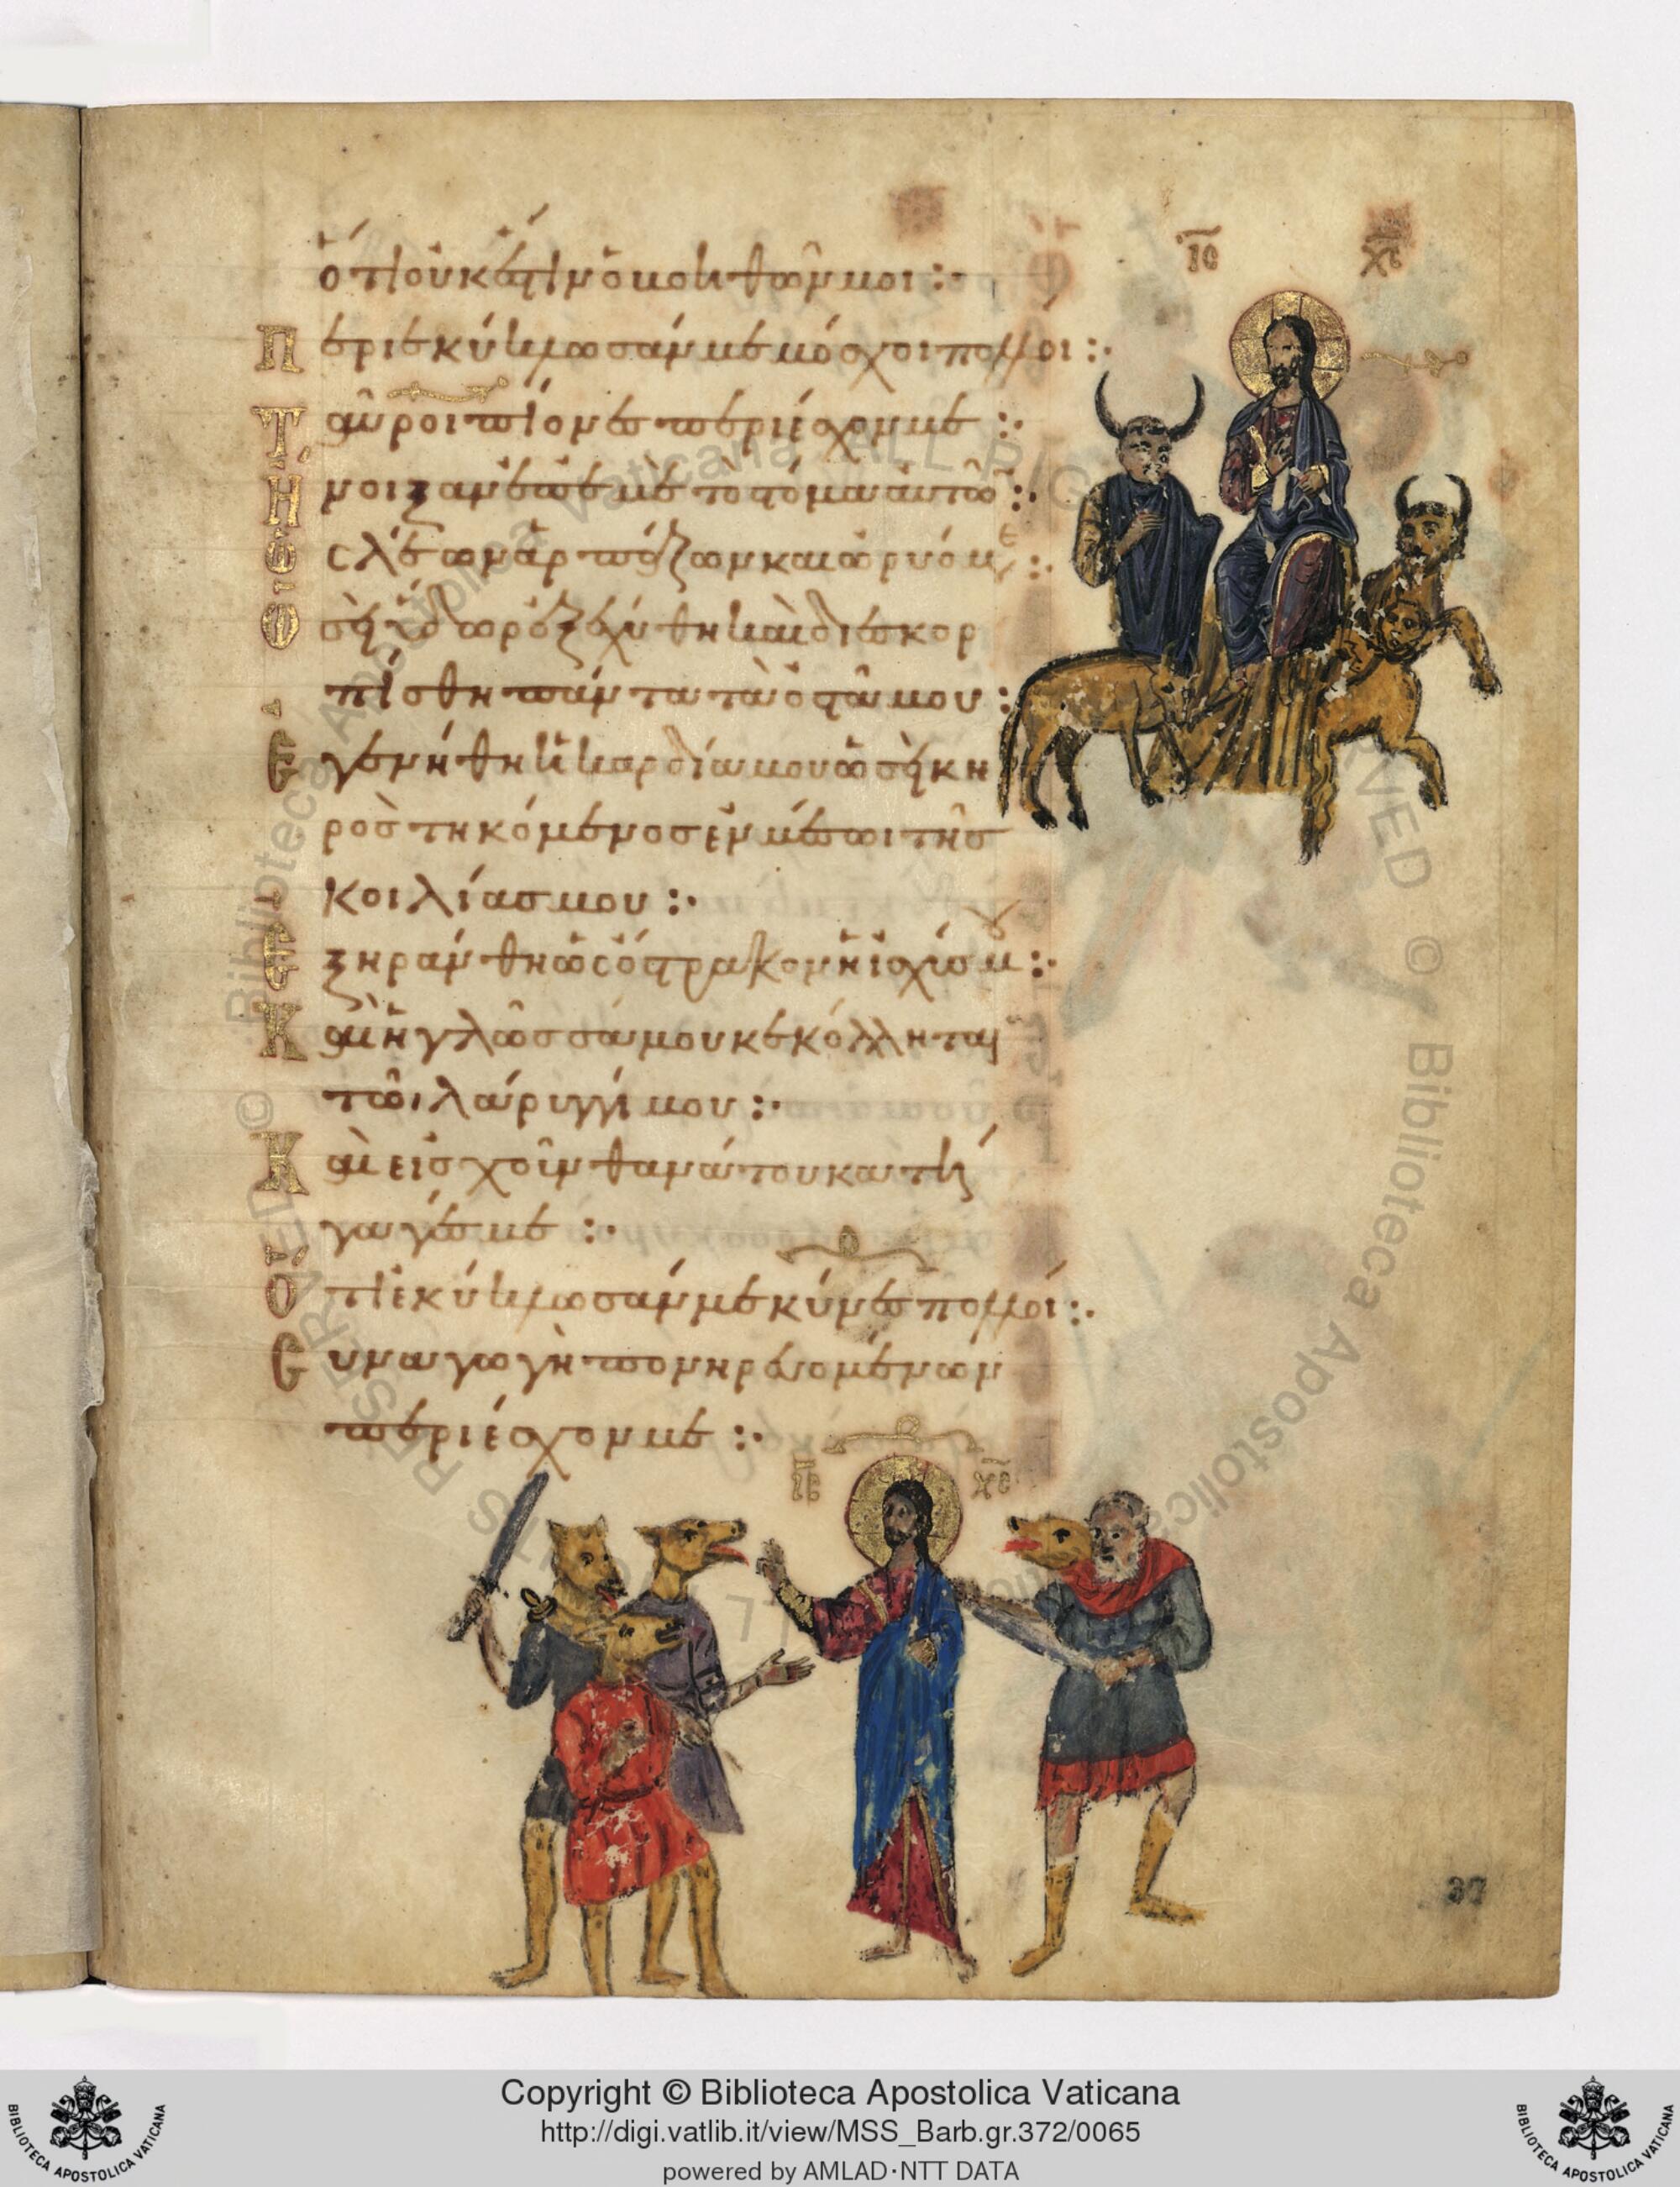 ὅτι οὐκ ἔστιν ὁ βοηθῶν μοι :·
Περιεκύκλωσάν με μόσχοι πολλοι :·
Ταῦροι πίονες περιέσχον με :·
Ἤνοιξαν ἐπ ἐμὲ τὸ στόμα αὐτῶ :·
Ὡς λέων ἁρπάζων καὶ ὠρυόμε :·
Ὡσεὶ ὕδωρ ἐξεχύθην καὶ διεσκορ
πίσθη πάντα τὰ ὀστᾶ μου :
Ἐγενήθη ἡ καρδία μου ὡσεὶ κη
ρὸς τηκόμενος ἐν μέσωι τῆς
κοιλίας μου :·
Ἐξηράνθη ὡς ὄστρακον ἡ ἰσχύς μου :·
Καὶ ἡ γλῶσσά μου κεκόλληται
τῶι λάρυγγί μου :·
Καὶ εἰς χοῦν θανάτου κατή
γαγές με :·
Ὅτι ἐκύκλωσάν με κύνες πολλοί :·
Συναγωγὴ πονηρευομένων
περιέσχον με :·
ΙC ΧC
ΙC ΧC
37
© Biblioteca Apostolica Vaticana ALL RIGHTS RESERVED
© Biblioteca Apostolica Vaticana ALL RIGHTS RESERVED
Copyright © Biblioteca Apostolica Vaticana
http://digi.vatlib.it/view/MSS_Barb.gr.372/0065
powered by AMLAD·NTT DATA
BIBLIOTECA APOSTOLICA VATICANA
BIBLIOTECA APOSTOLICA VATICANA